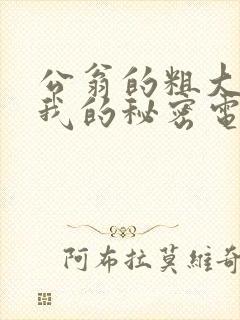 公翁的粗大
我的秘密電
阿布拉莫維奇